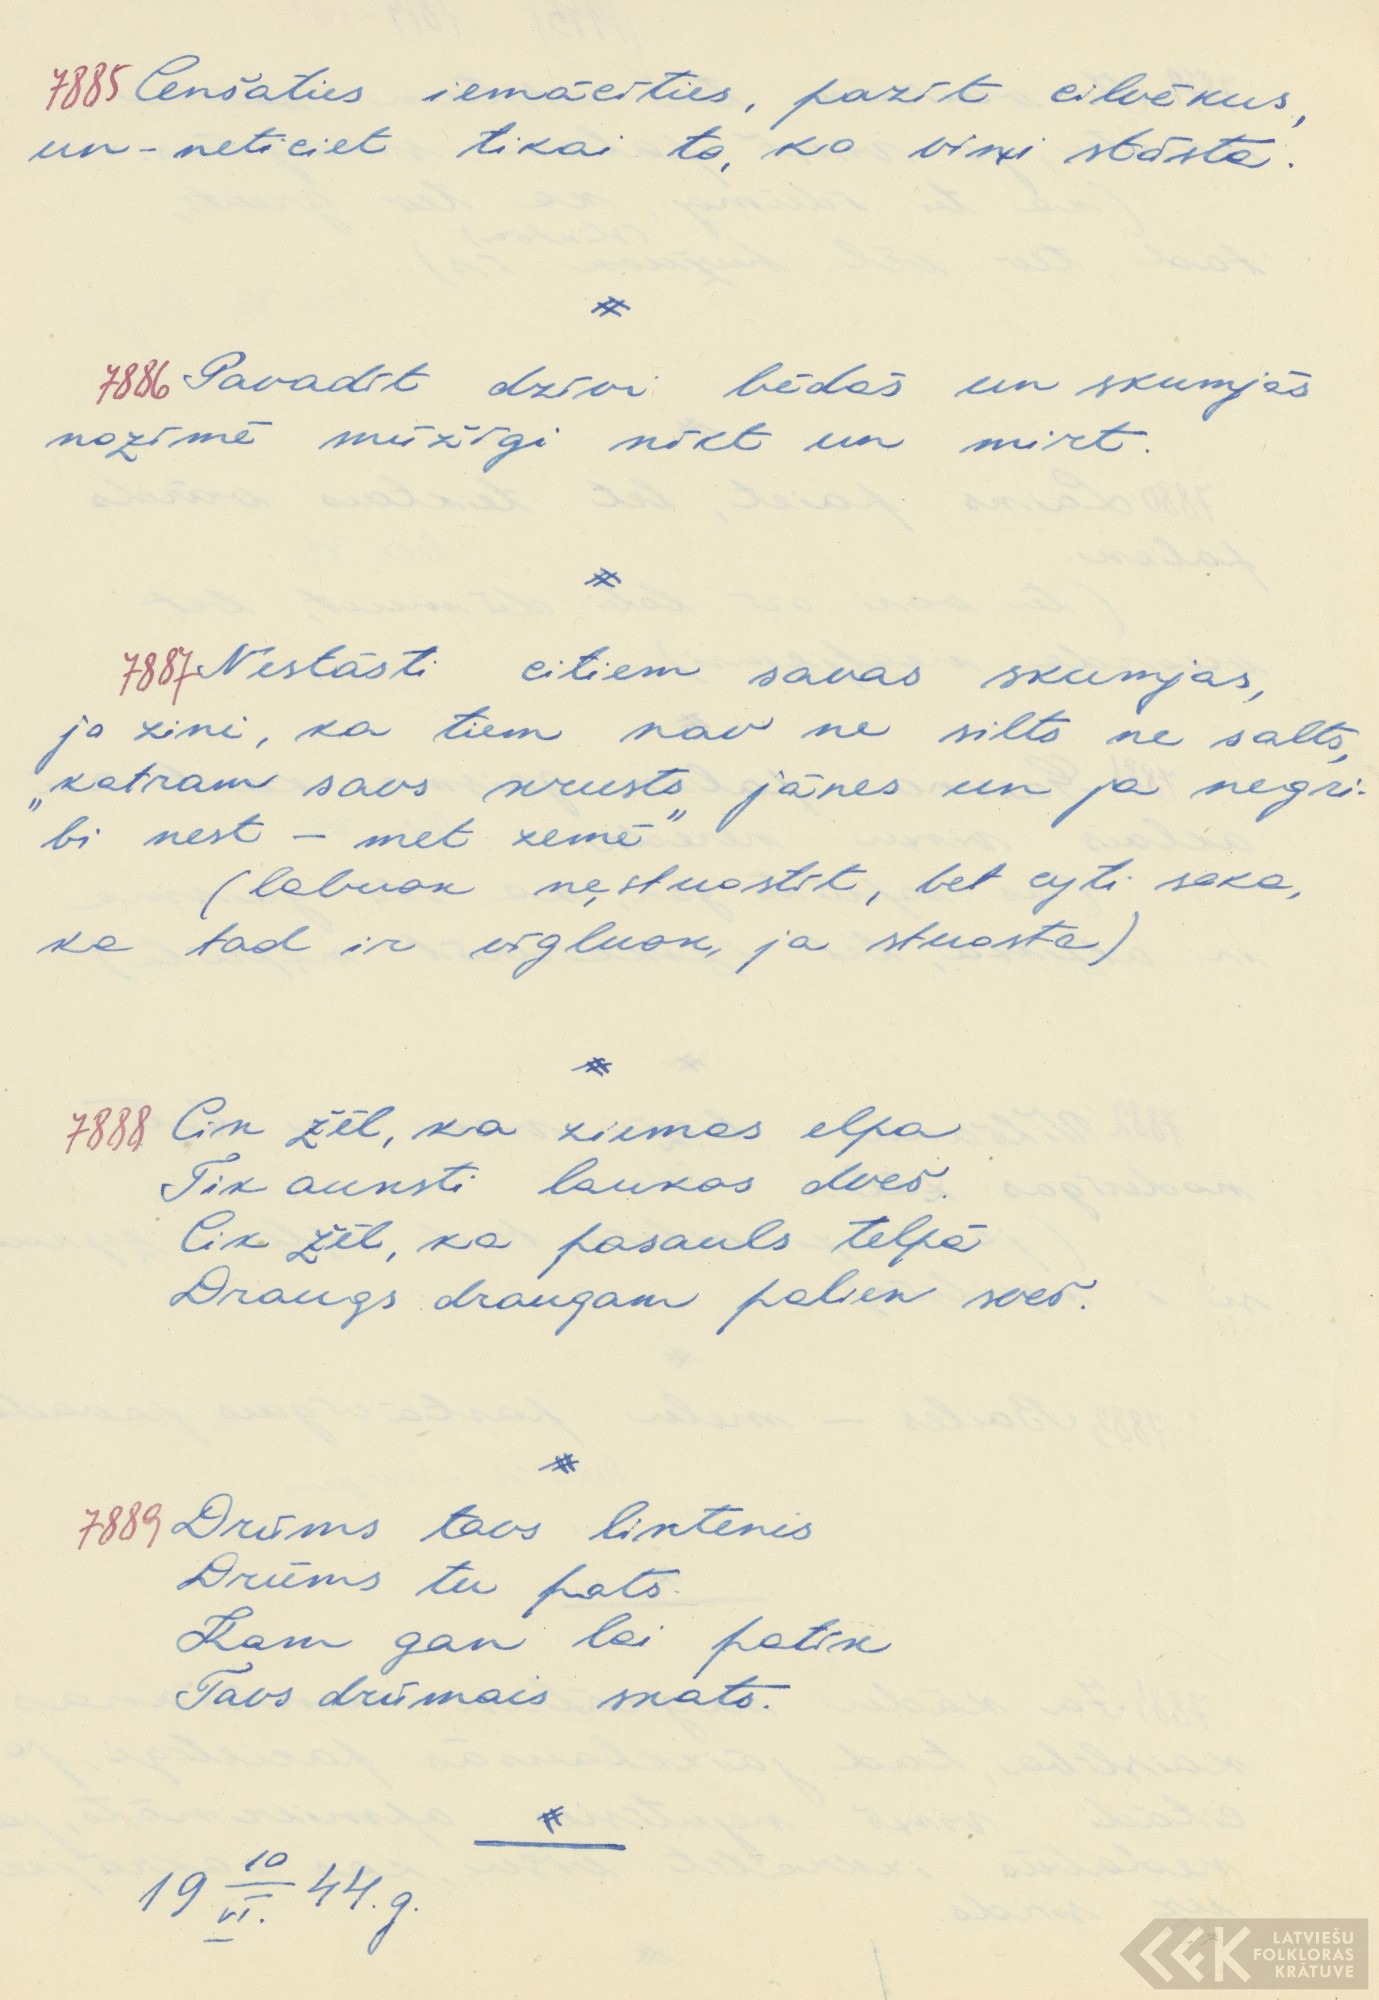 7885 Censaties iemācīties, pazīt cilvēkus,
un – neticiet tikai to, ko viņi stāsta.
#
7886 Pavadīt dzīvi bēdās un skumjās
nozīmē mūžīgi nīkt un mirt.
#
7887 Nestāsti citiem savas skumjas,
ja zini, ka tiem nav ne silts ne salts,
„katram savs krusts jānes un ja negri-
bi nest – met zemē”
(lobuok nestuostīt, bet cyti soka,
ka tad ir vīgluok, ja stuosta)
#
7888 Cik žēl, ka ziemas elpa
Tik auksti laukos dveš.
Cik žēl, ka pasauls telpā
Draugs draugam paliek svešs.
#
7889 Drūms tavs liktenis
Drūms tu pats.
Kam gan lai patīk
Tavs drūmais skats.
#
19 10/VI. 44. g.
LATVIEŠU
FOLKLORAS
KRĀTUVE